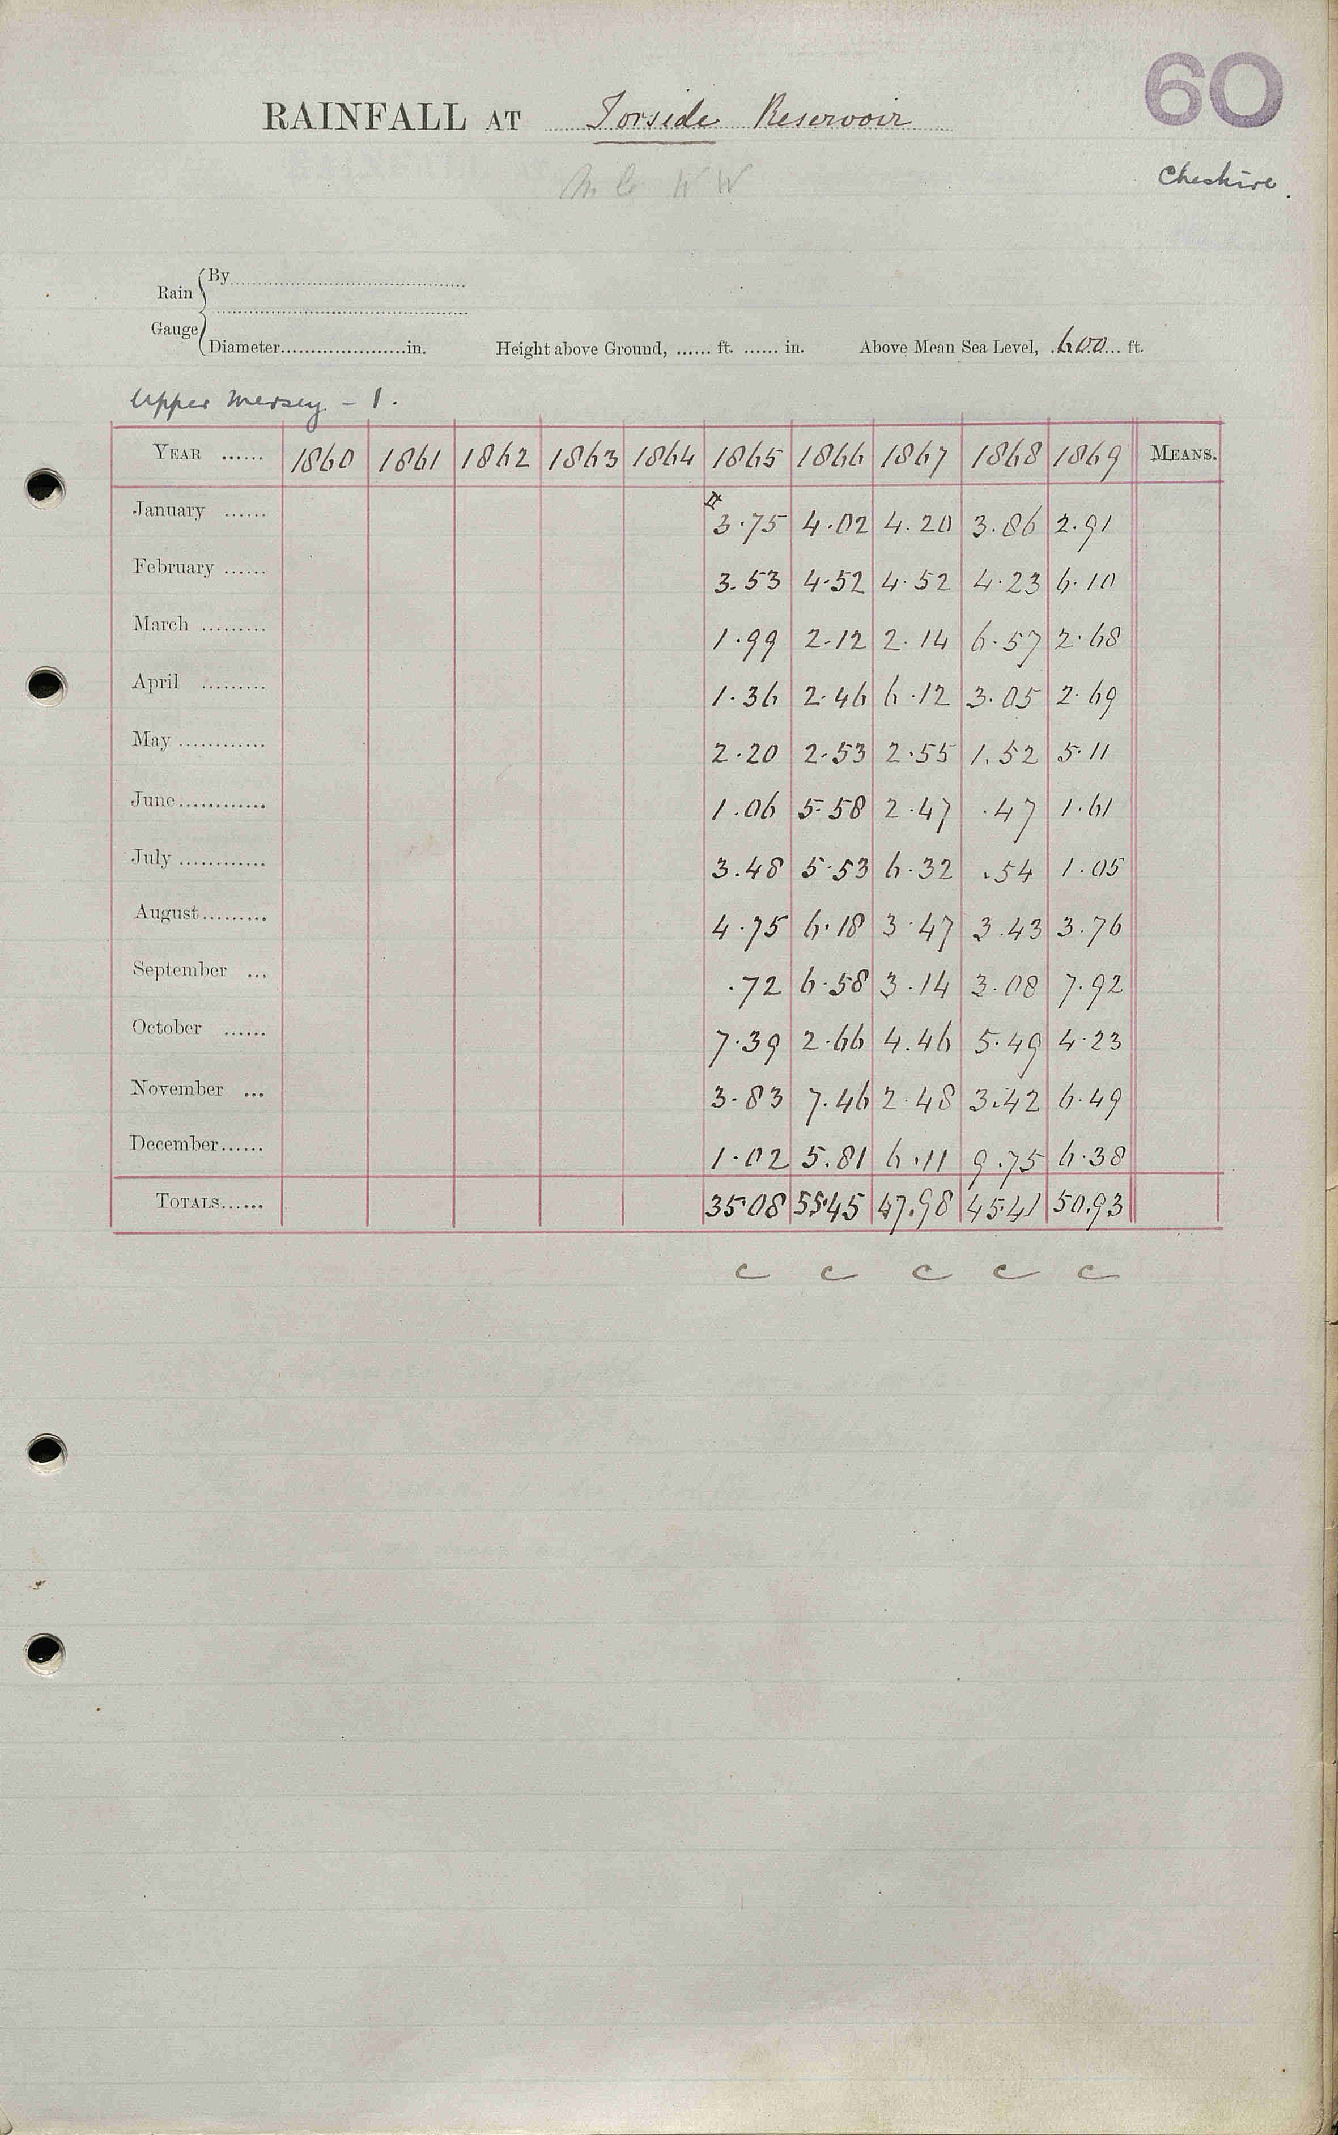 60
RAINFALL AT Torside Reservoir
Cheshire.
Mc WW
Rain Gauge { By
Diameter.....................in. Height above Ground, ...... ft. ...... in. Above Mean Sea Level, .600... ft.
Upper Mersey - 1.
YEAR ...... 1860 1861 1862 1863 1864 1865 1866 1867 1868 1869 MEANS.
January ...... 3.75 4.02 4.20 3.86 2.91
February ...... 3.53 4.52 4.52 4.23 6.10
March ......... 1.99 2.12 2.14 6.57 2.68
April ......... 1.36 2.46 6.12 3.05 2.69
May ............ 2.20 2.53 2.55 1.52 5.11
June............ 1.06 5.58 2.47 .47 1.61
July ............ 3.48 5.53 6.32 .54 1.05
August......... 4.75 6.18 3.47 3.43 3.76
September ... .72 6.58 3.14 3.08 7.92
October ...... 7.39 2.66 4.46 5.49 4.23
November ... 3.83 7.46 2.48 3.42 6.49
December...... 1.02 5.81 6.11 9.75 6.38
TOTALS...... 35.08 55.45 47.98 45.41 50.93
c c c c c